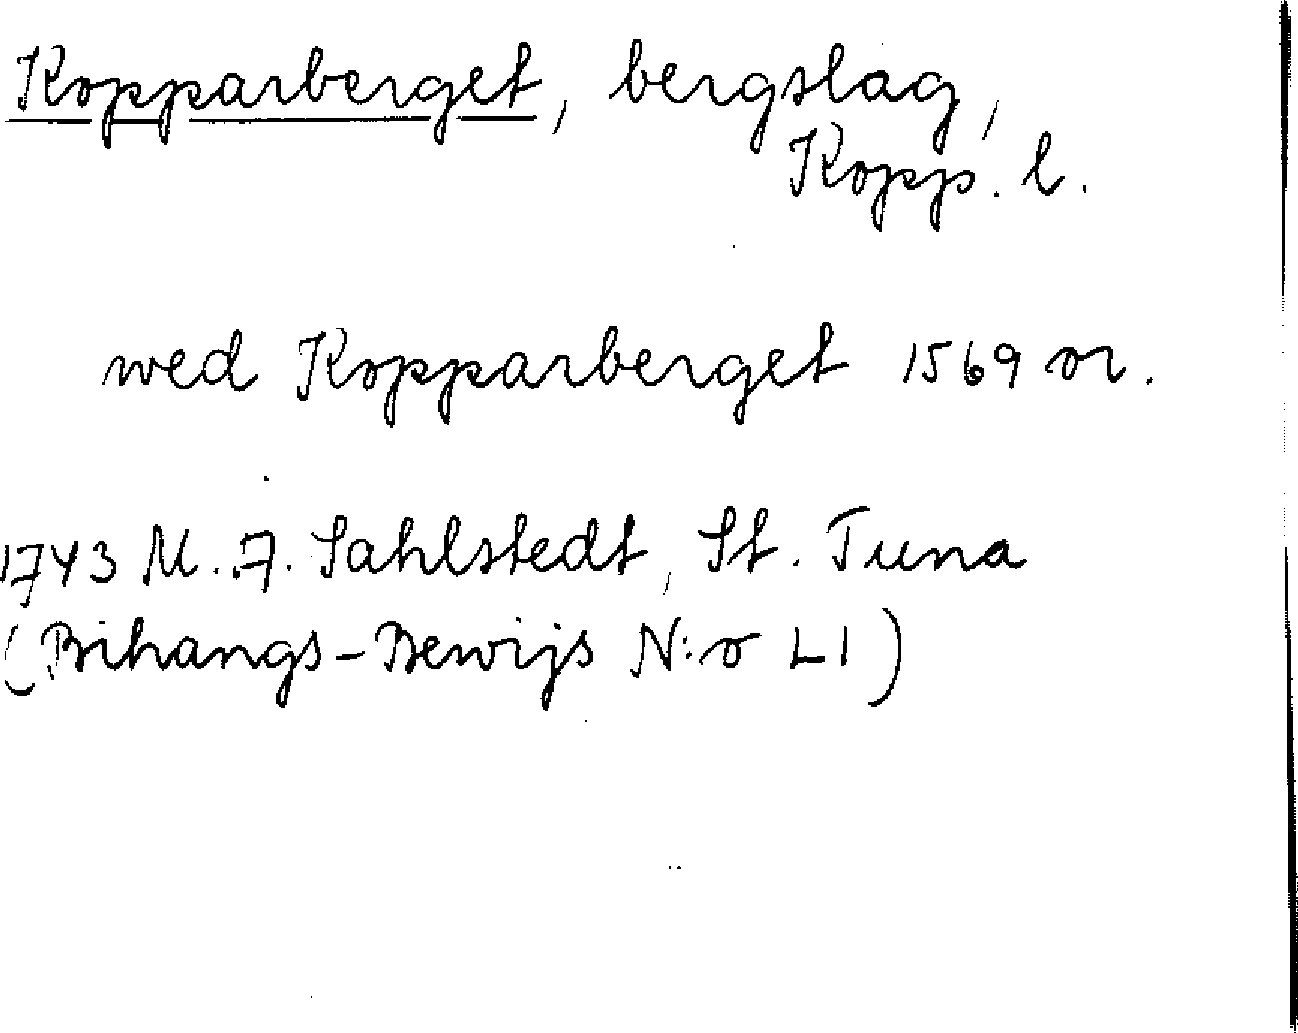 Kopparberget, bergslag,
Kopp. l.
wed Kopparberget 1569 or.
1743 M. A. Sahlstedt, St. Tuna
(Bihangs-Bewijs N:o LI)